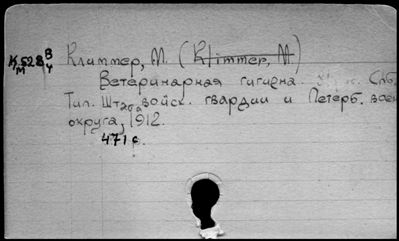 К 528 в
м ч
Климмер, М. (Klimmer, M)
Ветеринарная гигиена. Спб.
Тип. Штаба войск. гвардии и Петерб. воен
округа, 1912.
471 с.